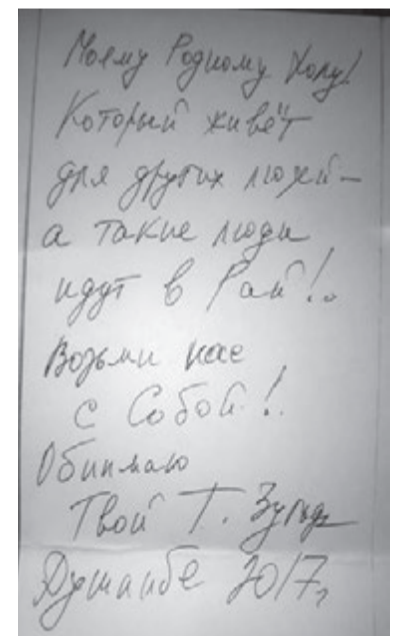 Моему Родному Холу!
Который живёт
для других людей —
а такие люди
идут в Рай!..
Возьми нас
с Собой!.
Обнимаю
Твой Т.
Душанбе 2017,